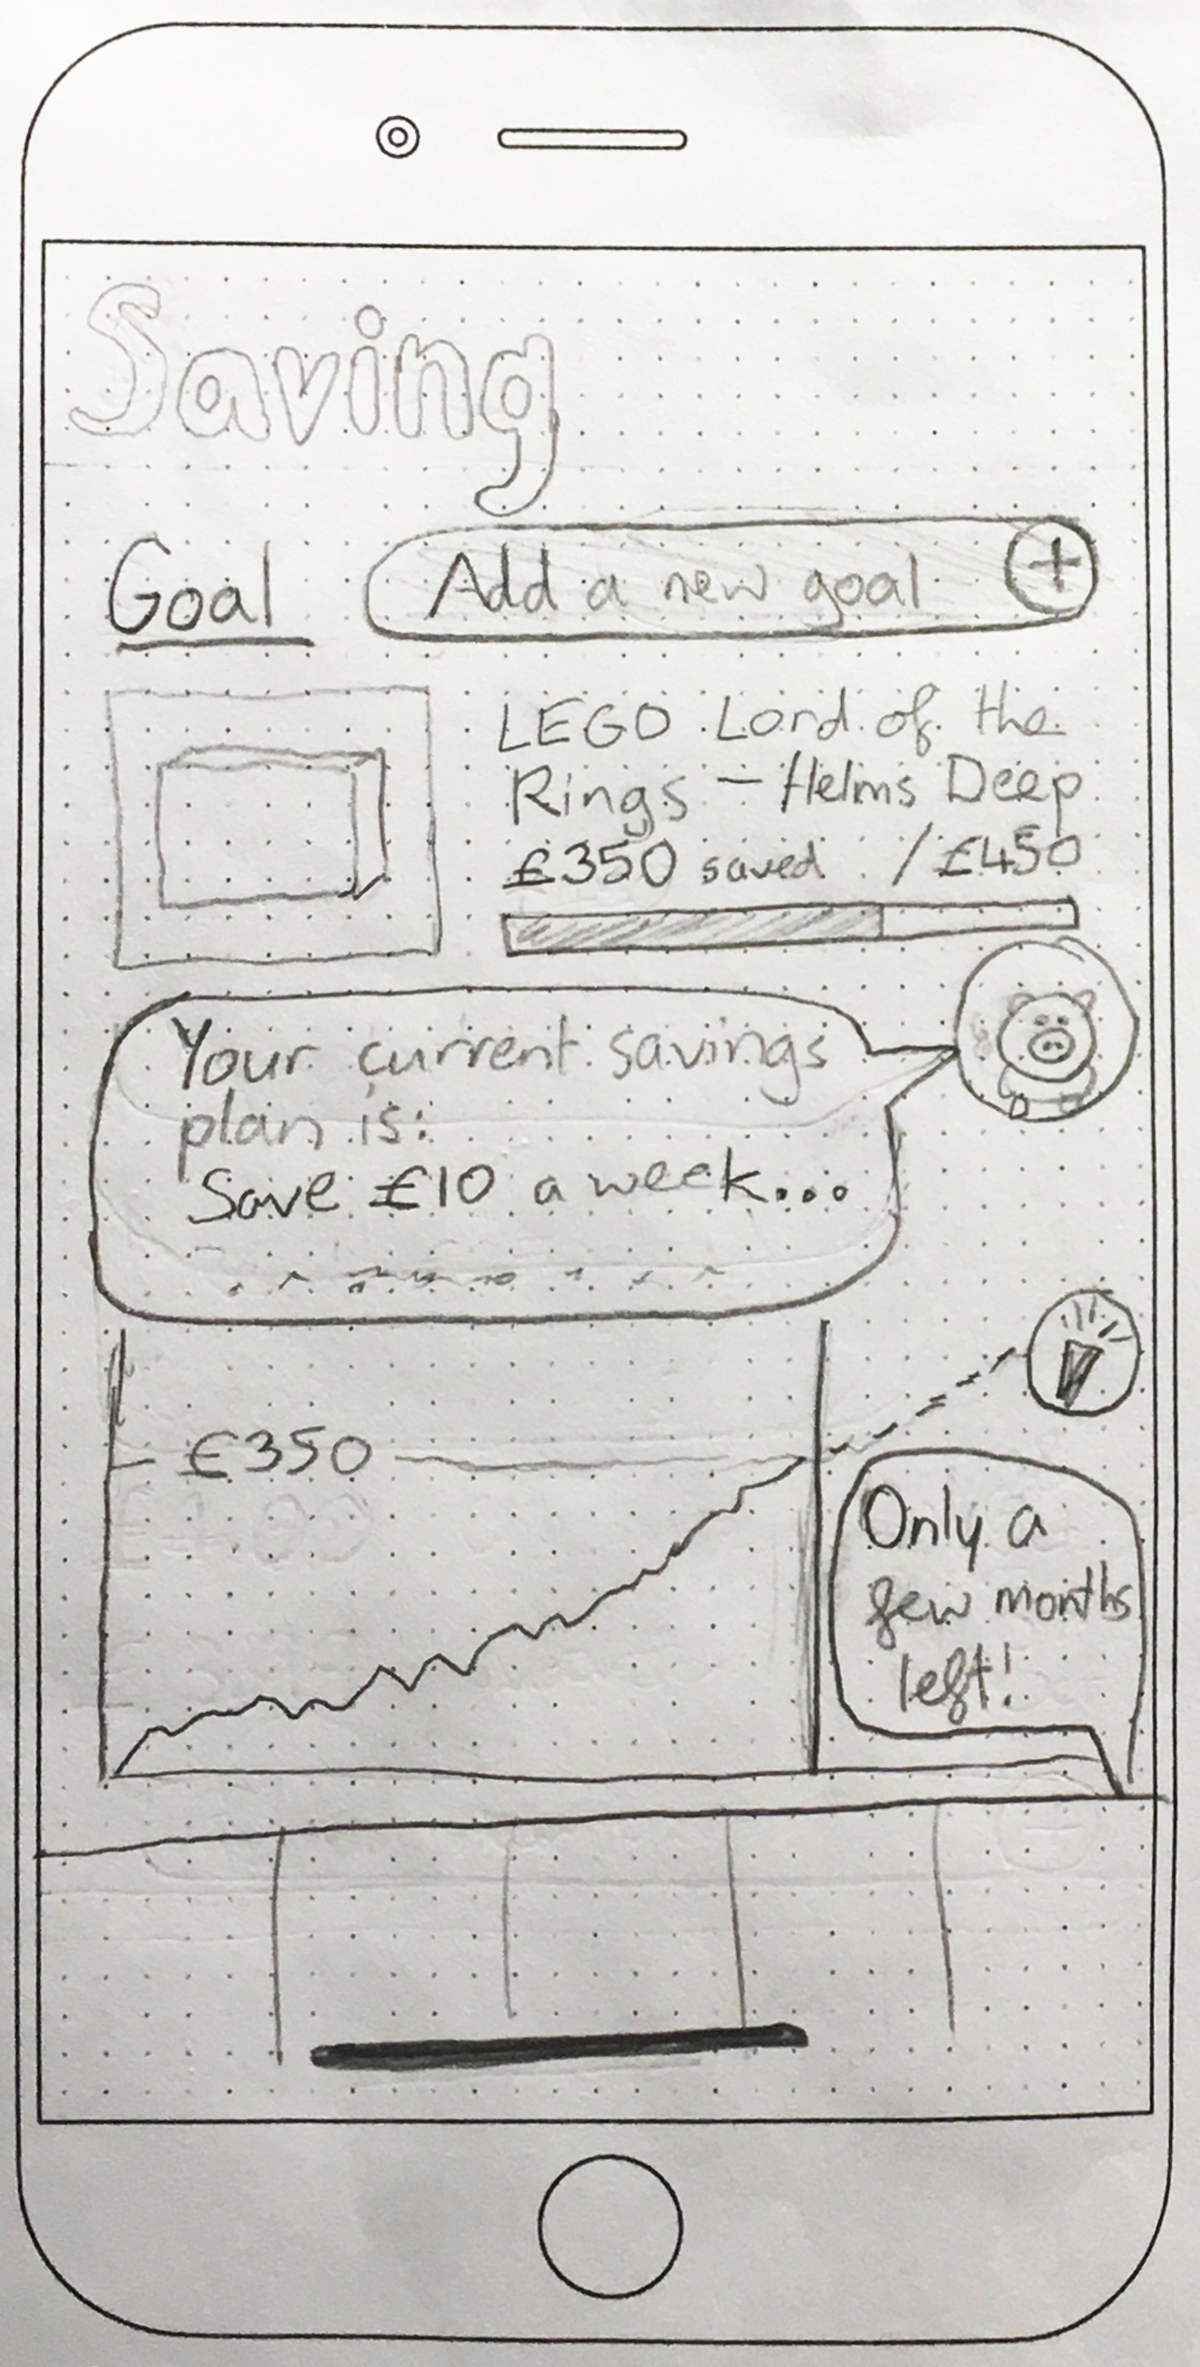 Saving
Goal
Add a new goal +
LEGO Lord of the
Rings – Helms Deep
£350 saved / £450
Your current savings
plan is:
Save £10 a week...
£350
Only a
few months
left!